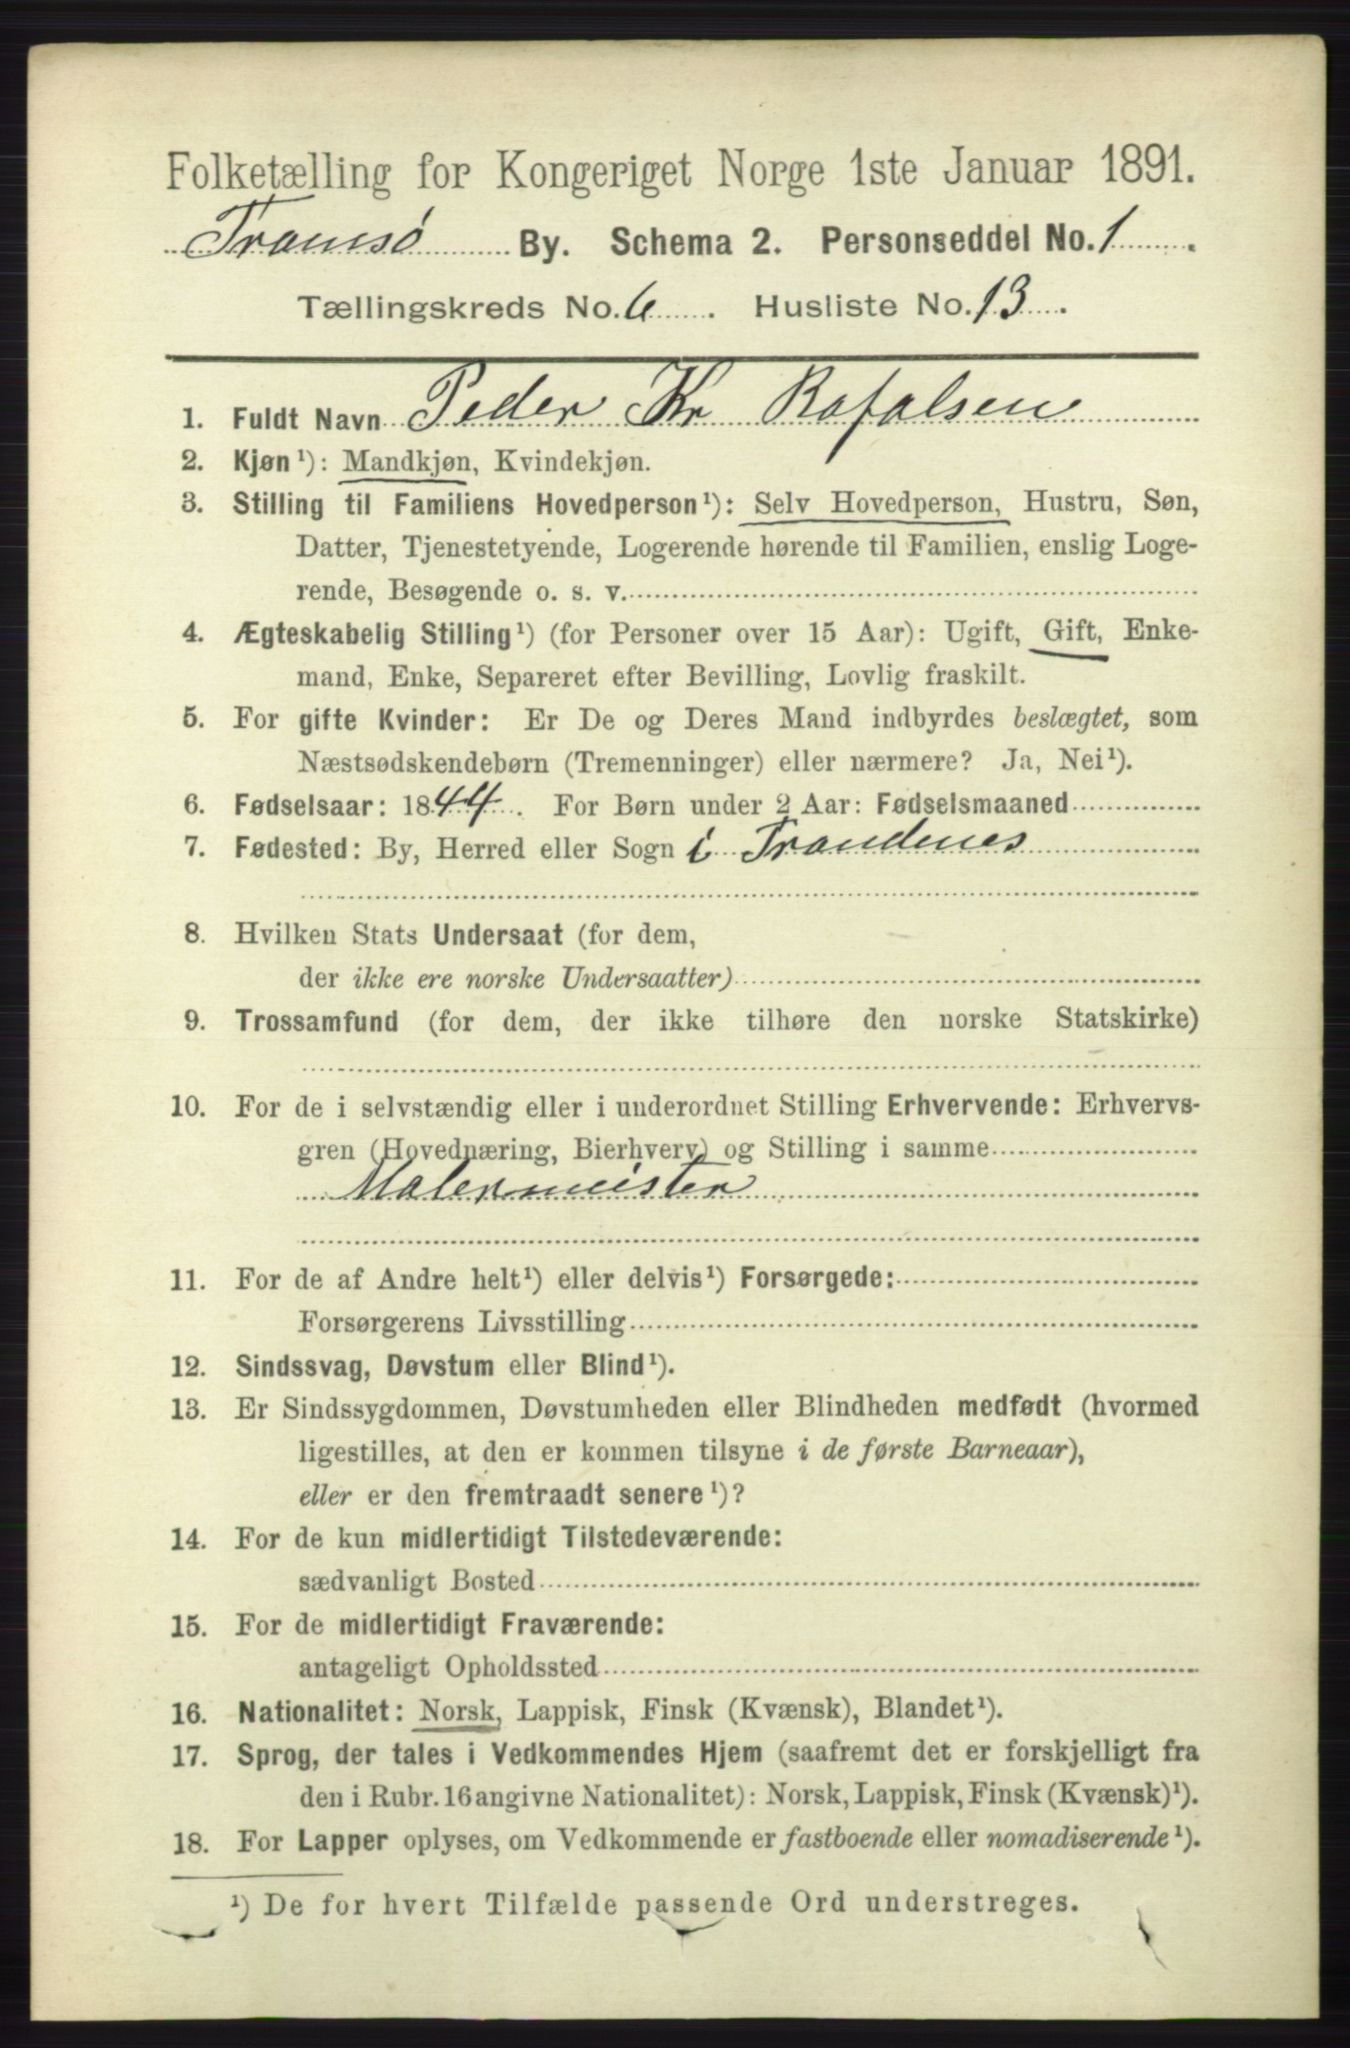 Folketælling for Kongeriget Norge 1ste Januar 1891.
Tromsø By. Schema 2. Personseddel No. 1.
Tællingskreds No. 6. Husliste No. 13.
1. Fuldt Navn Peder Kr Rafalsen
2. Kjøn¹): Mandkjøn, Kvindekjøn.
3. Stilling til Familiens Hovedperson¹): Selv Hovedperson, Hustru, Søn,
Datter, Tjenestetyende, Logerende hørende til Familien, enslig Loge-
rende, Besøgende o. s. v.
4. Ægteskabelig Stilling¹) (for Personer over 15 Aar): Ugift, Gift, Enke-
mand, Enke, Separeret efter Bevilling, Lovlig fraskilt.
5. For gifte Kvinder: Er De og Deres Mand indbyrdes beslægtet, som
Næstsødskendebørn (Tremenninger) eller nærmere? Ja, Nei¹).
6. Fødselsaar: 1844. For Børn under 2 Aar: Fødselsmaaned
7. Fødested: By, Herred eller Sogn i Trondenes
8. Hvilken Stats Undersaat (for dem,
der ikke ere norske Undersaatter)
9. Trossamfund (for dem, der ikke tilhøre den norske Statskirke)
10. For de i selvstændig eller i underordnet Stilling Erhvervende: Erhvervs-
gren (Hovednæring, Bierhverv) og Stilling i samme
Malermeister
11. For de af Andre helt¹) eller delvis¹) Forsørgede:
Forsørgerens Livsstilling
12. Sindssvag, Døvstum eller Blind¹).
13. Er Sindssygdommen, Døvstumheden eller Blindheden medfødt (hvormed
ligestilles, at den er kommen tilsyne i de første Barneaar),
eller er den fremtraadt senere¹)?
14. For de kun midlertidigt Tilstedeværende:
sædvanligt Bosted
15. For de midlertidigt Fraværende:
antageligt Opholdssted
16. Nationalitet: Norsk, Lappisk, Finsk (Kvænsk), Blandet¹).
17. Sprog, der tales i Vedkommendes Hjem (saafremt det er forskjelligt fra
den i Rubr. 16 angivne Nationalitet): Norsk, Lappisk, Finsk (Kvænsk)¹).
18. For Lapper oplyses, om Vedkommende er fastboende eller nomadiserende¹).
¹) De for hvert Tilfælde passende Ord understreges.